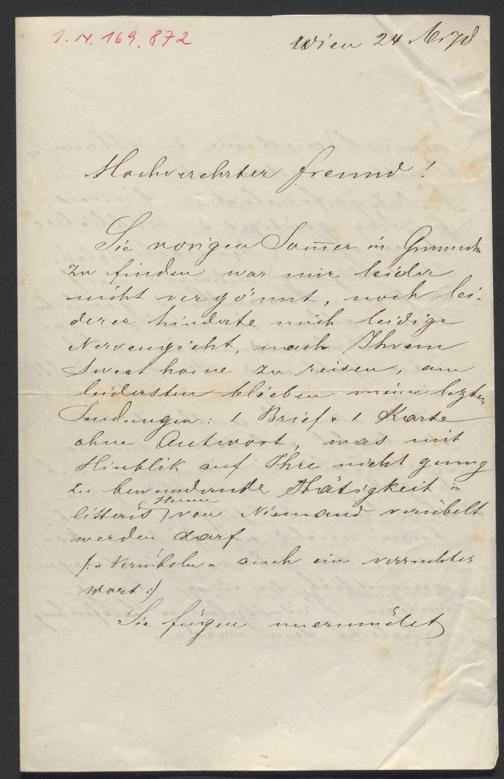 I. N. 169.872
Wien 24
Hochverehrter Freund!
Sie vorigen Somer in Gmunden
zu finden war mir leider
nicht vergönnt, noch lei-
derer hinderte mich leidige
Nervengicht, nach Ihrem
Sweet home zu reisen, am
leidersten blieben meine lezten
Sendungen: 1 Brief & 1 Karte
ohne Antwort, was mit
Hinblik auf Ihre nicht genug
zu bewundernde Thätigkeit in
litteris von Niemand verübelt
werden darf
/: „Verübeln" auch ein verrücktes
Wort :/
Sie fügen unermüdet